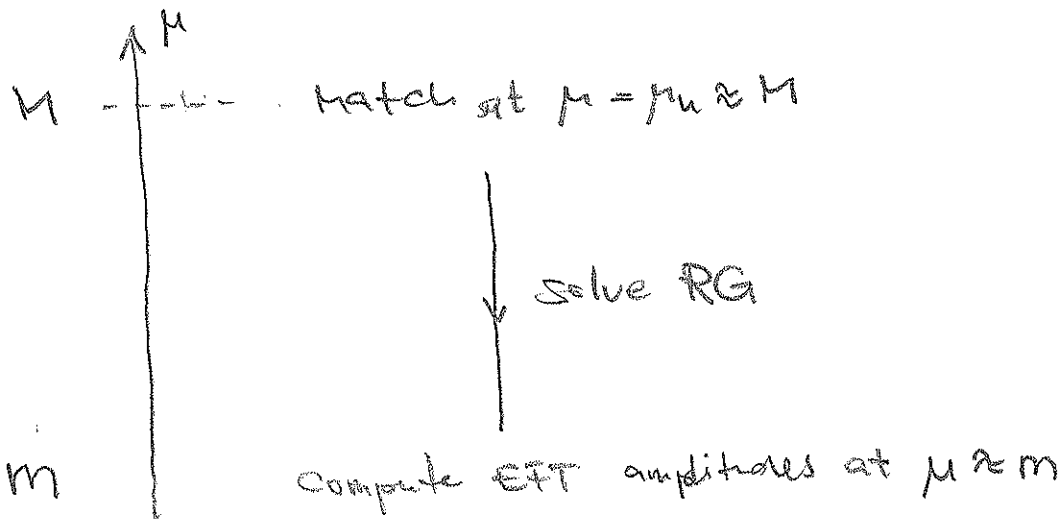 μ
M Match at μ = μ_h ≈ M
solve RG
m Compute EFT amplitudes at μ ≈ m